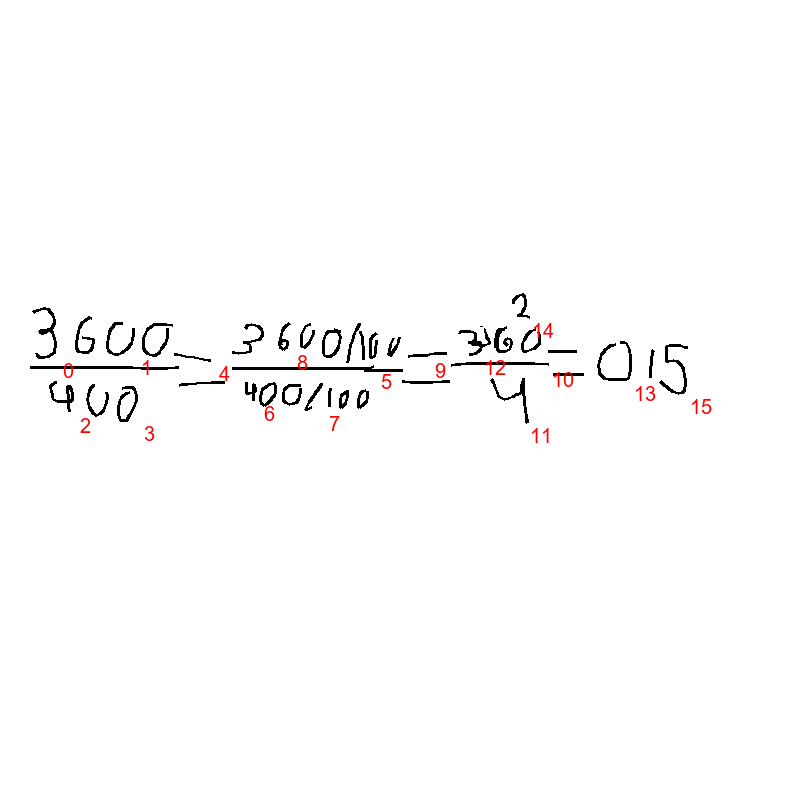 3600/400 = 3600/100/400/100 = 360²/4 = 015
0 1 2 3 4 5 6 7 8 9 10 11 12 13 14 15